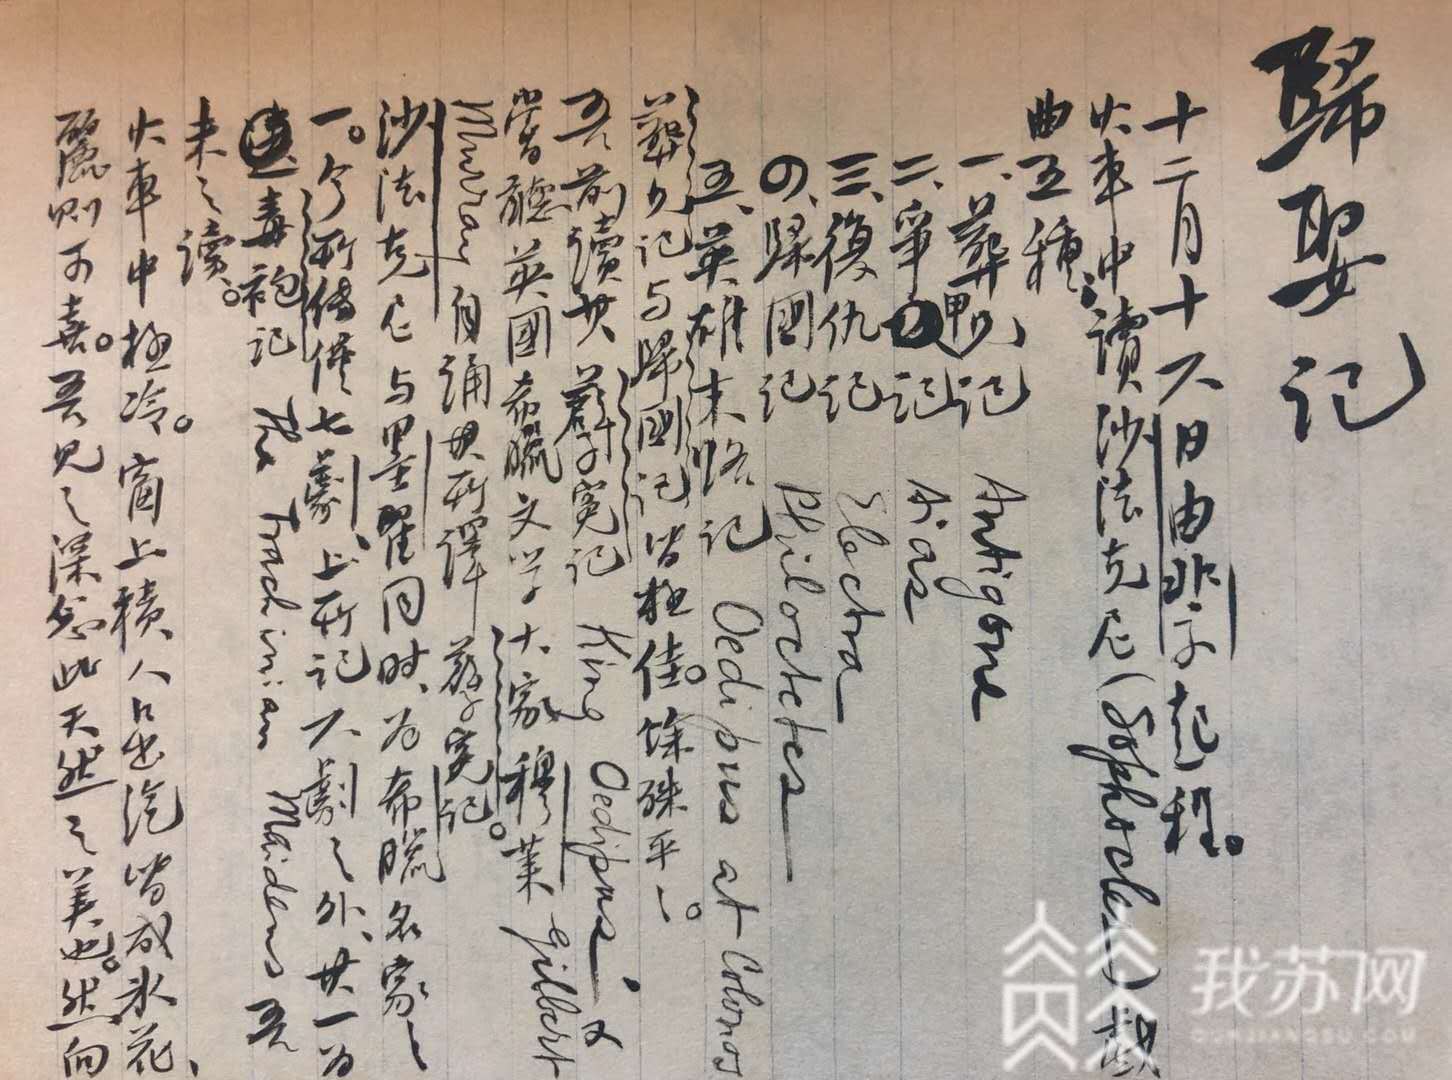 歸娶記
十二月十六日由北京起程。
火車中讀沙法克尼(Sophocles)戲
曲五種、
一、葬兄記 Antigone
二、爭甲記 Aias
三、復仇記 Electra
四、歸國記 Philoctetes
五、英雄末路記 Oedipus at Colonos
葬兄記与歸國記皆極佳。餘殊平平。
吾前讀其孽冤記 King Oedipus, 又
嘗聽英國希臘文学大家穆萊 Gilbert
Murray 自誦其所譯孽冤記。
沙法克尼与墨翟同時、为希臘名家之
一。今所傳僅七劇、上所記六劇之外、其一为
毒袍記 The Trachinian Maidens 吾
未之讀。
火車中極冷。窗上積人口出汽皆成氷花、
麗則可喜。吾見之深念此天然之美也。然向
我苏网